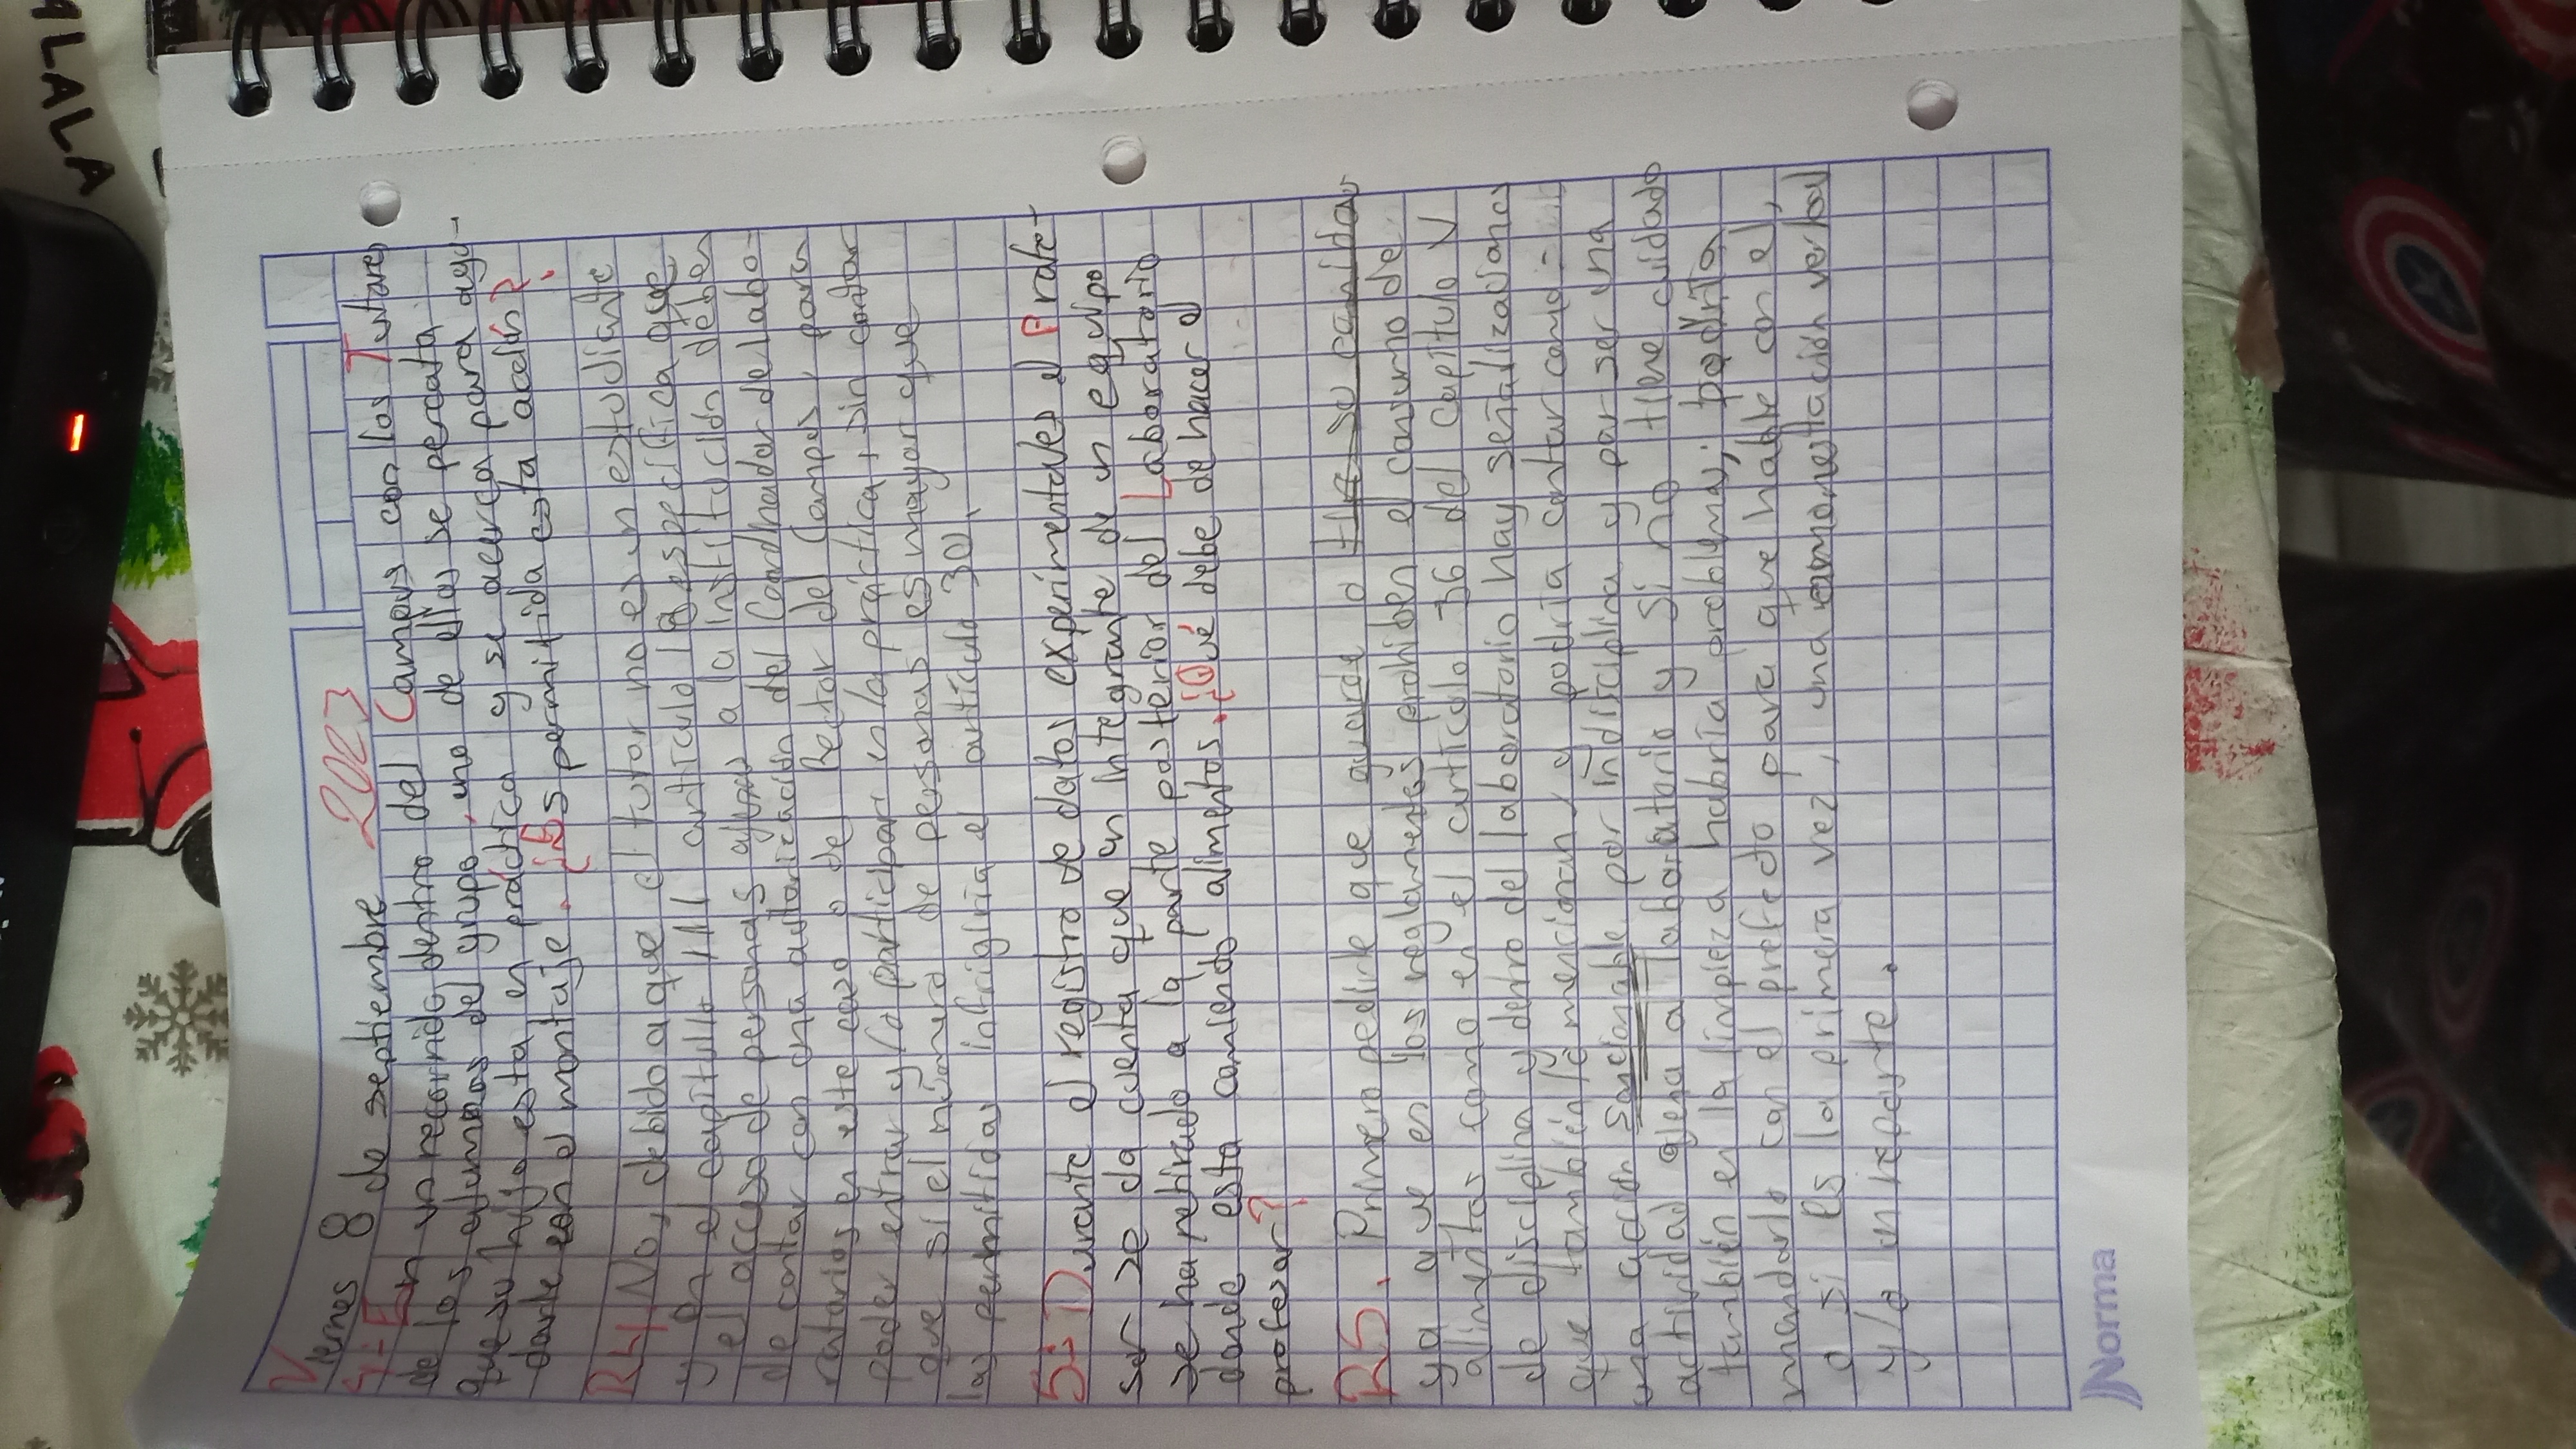 Viernes 8 de septiembre 2023
4.- En un recorrido dentro del Campus con los Tutores
de los alumnos del grupo, uno de ellos se percata
que su hijo esta en práctica y se acerca para ayu-
darle con el montaje. ¿Es permitida esta acción?
R4 No, debido a que el tutor no es un estudiante
y en el capítulo III artículo 19 especifica que
el acceso de personas ajenas a la institución deben
de contar con una autorización del Coordinador de labo-
ratorios en este caso o de rector de Campos, para
poder entrar y/o participar en la práctica + sin contar
que si el número de personas es mayor que
las permitidas infrigiría el artículo 30.
5.- Durante el registro de datos experimentales el Profe-
sor se da cuenta que un integrante de un equipo
se ha retirado a la parte posterior del Laboratorio
donde esta comiendo alimentos. ¿Qué debe de hacer el
profesor?
R5. Primero pedirle que guarde o tire su comida,
ya que en los reglamentos prohiben el consumo de
alimentos como en el artículo 36 del Capítulo V
de disciplina y dentro del laboratorio hay señalizaciones
que también lo mencionan, y podría contar como
una acción sancionable por indisciplina y por ser una
actividad ajena a laboratorio y si no tiene cuidado
también en la limpieza habría problema; podría
mandarlo con el prefecto para que hable con el,
o si es la primera vez, una amonestación verbal
y/o un reporte.
Norma
LALA